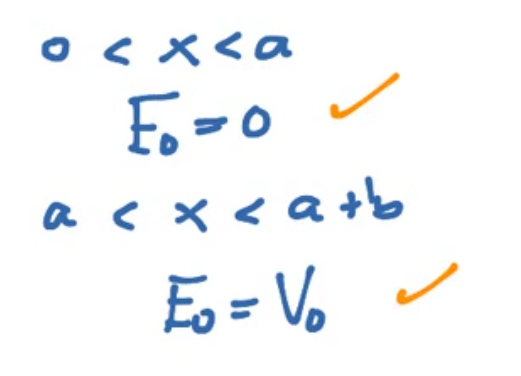 0 < x < a
E₀ = 0 ✓
a < x < a + b
E₀ = V₀ ✓